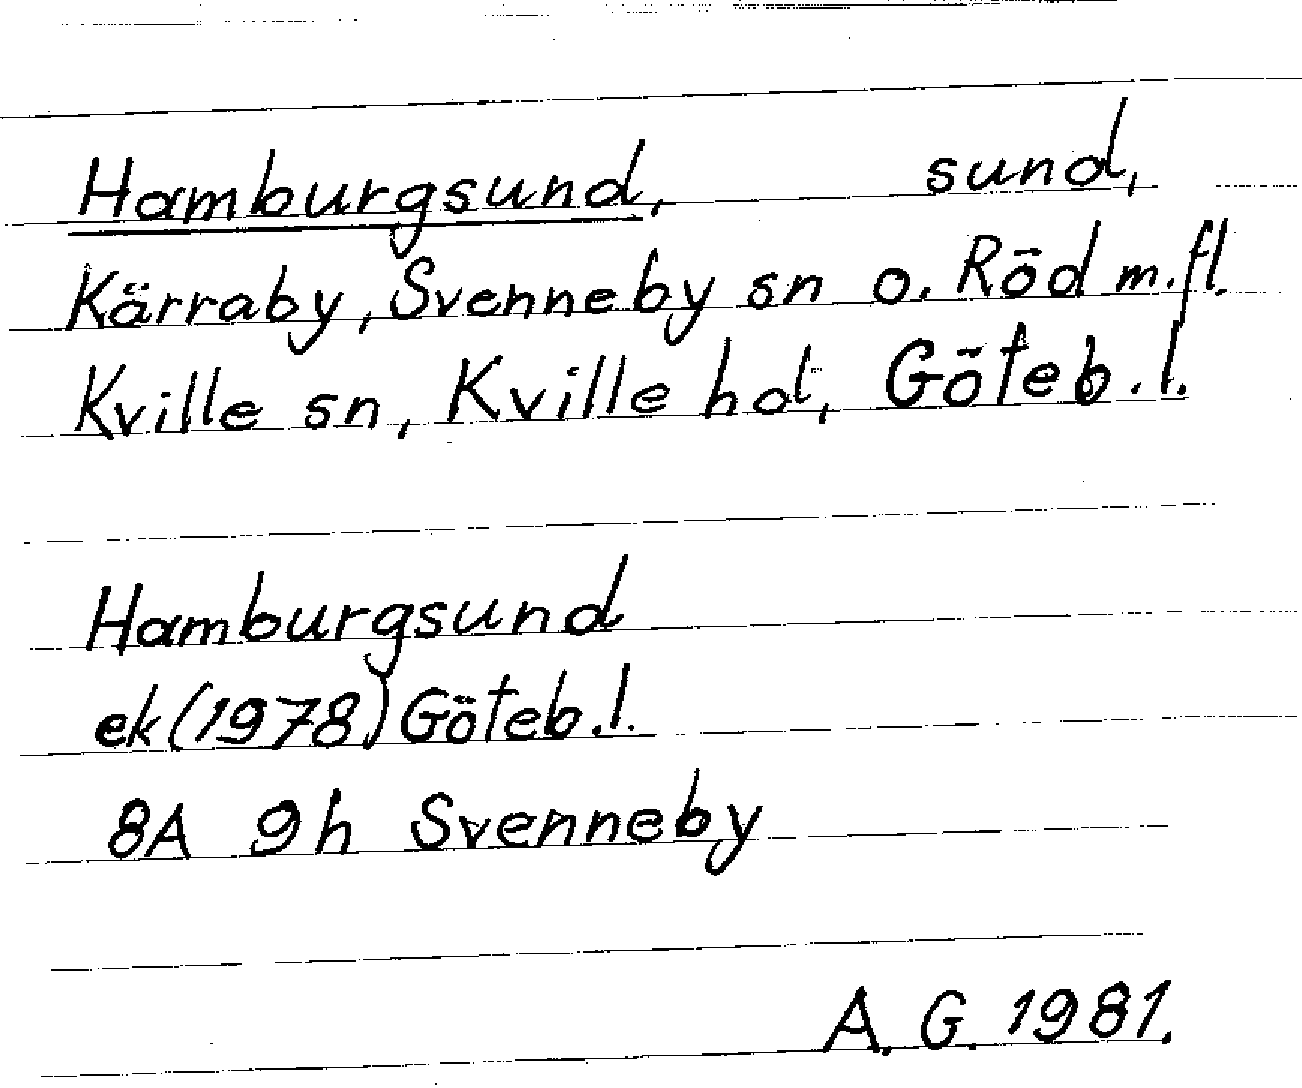 Hamburgsund, sund,
Kärraby, Svenneby sn o. Röd m.fl.
Kville sn, Kville hd, Göteb.l.
Hamburgsund
ek (1978) Göteb.l.
8A 9h Svenneby
A. G. 1981.